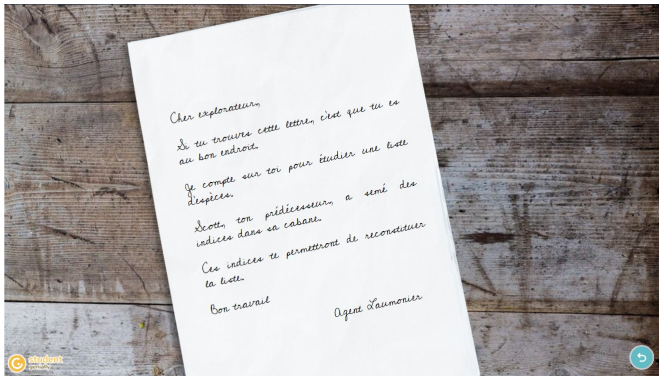 Cher explorateur,
Si tu trouves cette lettre, c'est que tu es
au bon endroit.
Je compte sur toi pour étudier une liste
d'espèces.
Scott, ton prédécesseur, a semé des
indices dans sa cabane.
Ces indices te permettront de reconstituer
la liste.
Bon travail
Agent Laumonier
G student